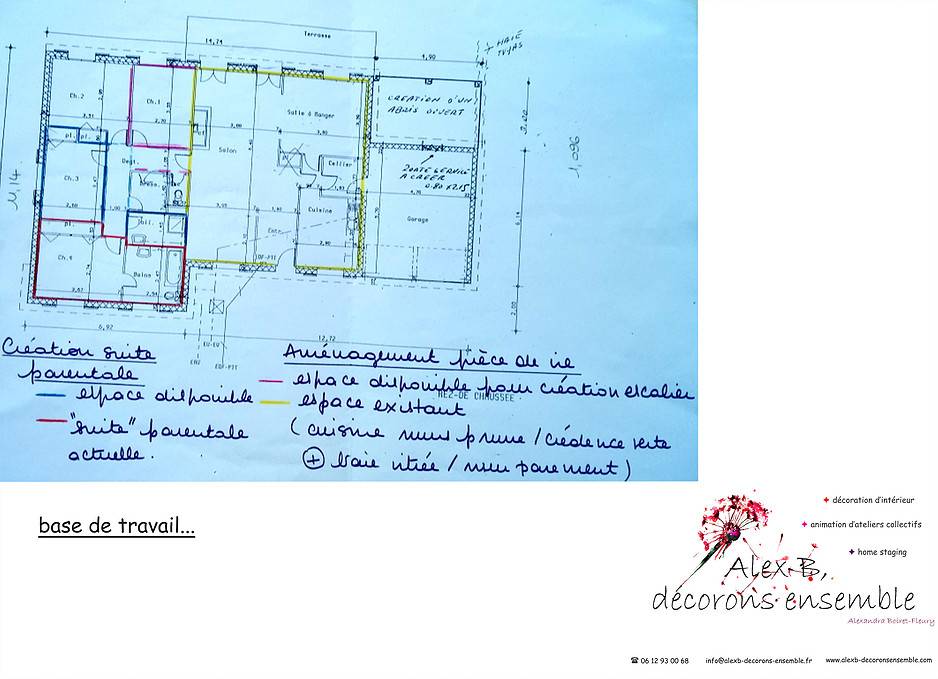 Terrasse
14,74
4,90
HAIE
TUYAS
Ch.2
Ch.1
CREATION D'UN
ABRIS OUVERT
Salle à Manger
Salon
pl.
pl.
Degt.
Cellier
PORTE SERVICE
A CREER
0.80 X 2.15
11,14
Ch.3
Cuisine
Garage
Entr.
pl.
Ch.4
Bains
6,92
12,72
EU-EV
EDF-PTT
REZ-DE CHAUSSEE
Création suite
parentale
espace disponible
"suite" parentale
actuelle.
Aménagement pièce de vie
espace disponible pour création escalier
espace existant
(cuisine murs prune / crédence verte
+ baie vitrée / mur parement)
base de travail...
décoration d'intérieur
animation d'ateliers collectifs
home staging
Alex B,
décorons ensemble
Alexandra Boiret-Fleury
☎ 06 12 93 00 68 info@alexb-decorons-ensemble.fr www.alexb-decoronsensemble.com